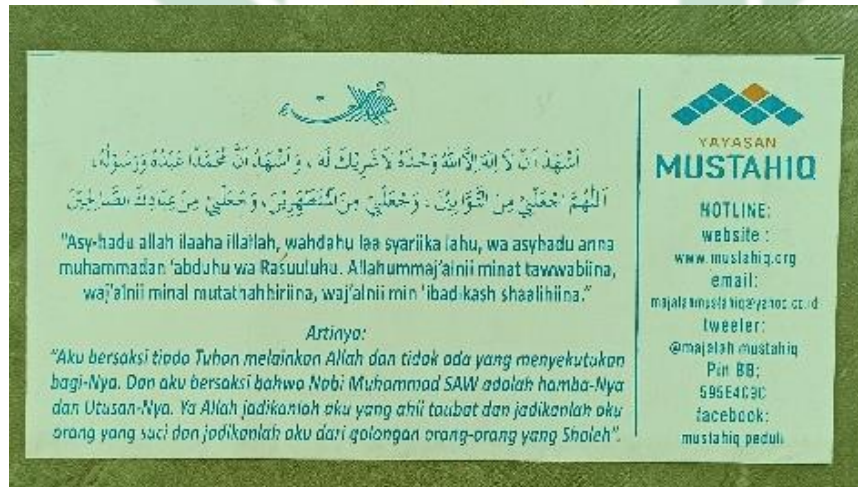 اَشْهَدُ اَنْ لَا اِلهَ اِلَّا اللهُ وَحْدَهُ لَا شَرِيْكَ لَهُ ، وَ اَشْهَدُ اَنَّ مُحَمَّدًا عَبْدُهُ وَرَسُوْلُهُ،
اَللّٰهُمَّ اجْعَلْنِيْ مِنَ التَّوَّابِيْنَ ، وَجْعَلْنِيْ مِنَ الْمُتَطَهِّرِيْنَ، وَجْعَلْنِيْ مِنْ عِبَادِكَ الصَّالِحِيْنَ
"Asy-hadu allah ilaaha illallah, wahdahu laa syariika lahu, wa asyhadu anna
muhammadan 'abduhu wa Rasuuluhu. Allahummaj'alnii minat tawwabiina,
waj'alnii minal mutathahhiriina, waj'alnii min 'ibadikash shaalihiina."
Artinya:
"Aku bersaksi tiada Tuhan melainkan Allah dan tidak ada yang menyekutukan
bagi-Nya. Dan aku bersaksi bahwa Nabi Muhammad SAW adalah hamba-Nya
dan Utusan-Nya. Ya Allah jadikanlah aku yang ahli taubat dan jadikanlah aku
orang yang suci dan jadikanlah aku dari golongan orang-orang yang Sholeh".
YAYASAN
MUSTAHIQ
HOTLINE:
website :
www.mustahiq.org
email:
majalahmustahiq@yahoo.co.id
tweeter:
@majalah mustahiq
Pin BB:
facebook:
mustahiq peduli